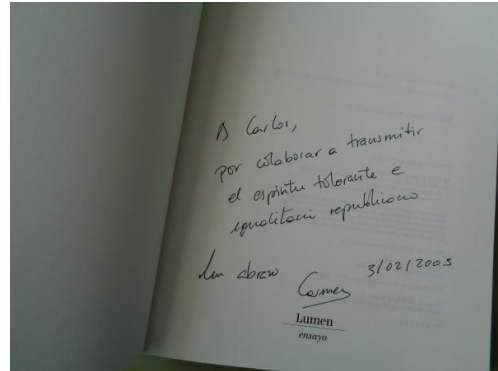 A Carlos,
por colaborar a transmitir
el espíritu tolerante e
igualitario republicano
Un abrazo
3/02/2005
Carmen
Lumen
ensayo